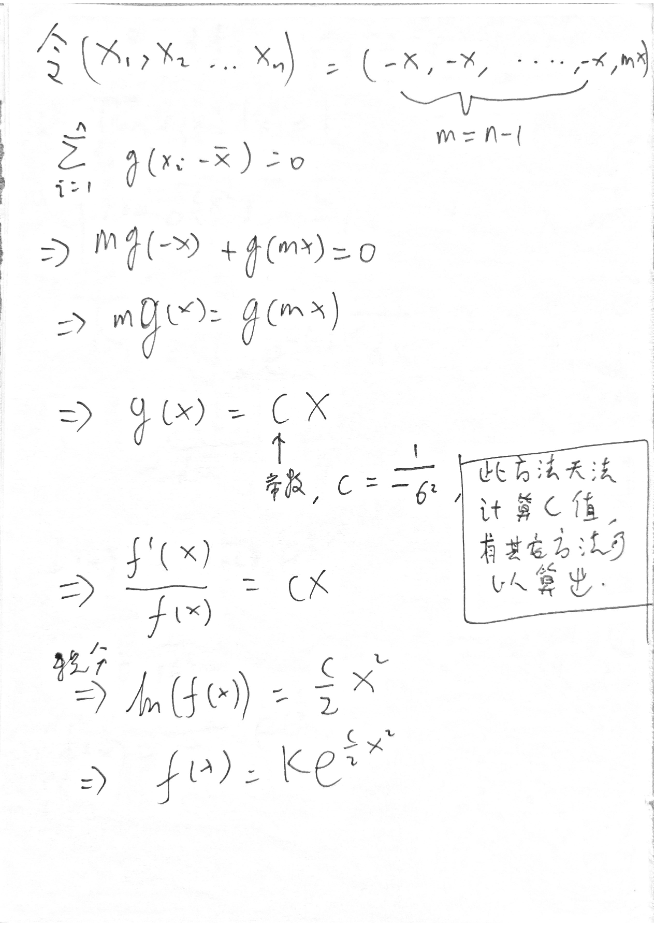 令(X₁, X₂ ... Xₙ) = (-x, -x, ....., -x, mx)
m = n-1
∑ᵢ₌₁ⁿ g(xᵢ - x̄) = 0
⇒ mg(-x) + g(mx) = 0
⇒ mg(x) = g(mx)
⇒ g(x) = CX
↑
常数, C = -1/σ²,
此方法无法
计算C值,
有其它方法可
以算出.
⇒ f'(x)/f(x) = CX
积分
⇒ ln(f(x)) = C/2 x²
⇒ f(x) = Ke^(C/2 x²)